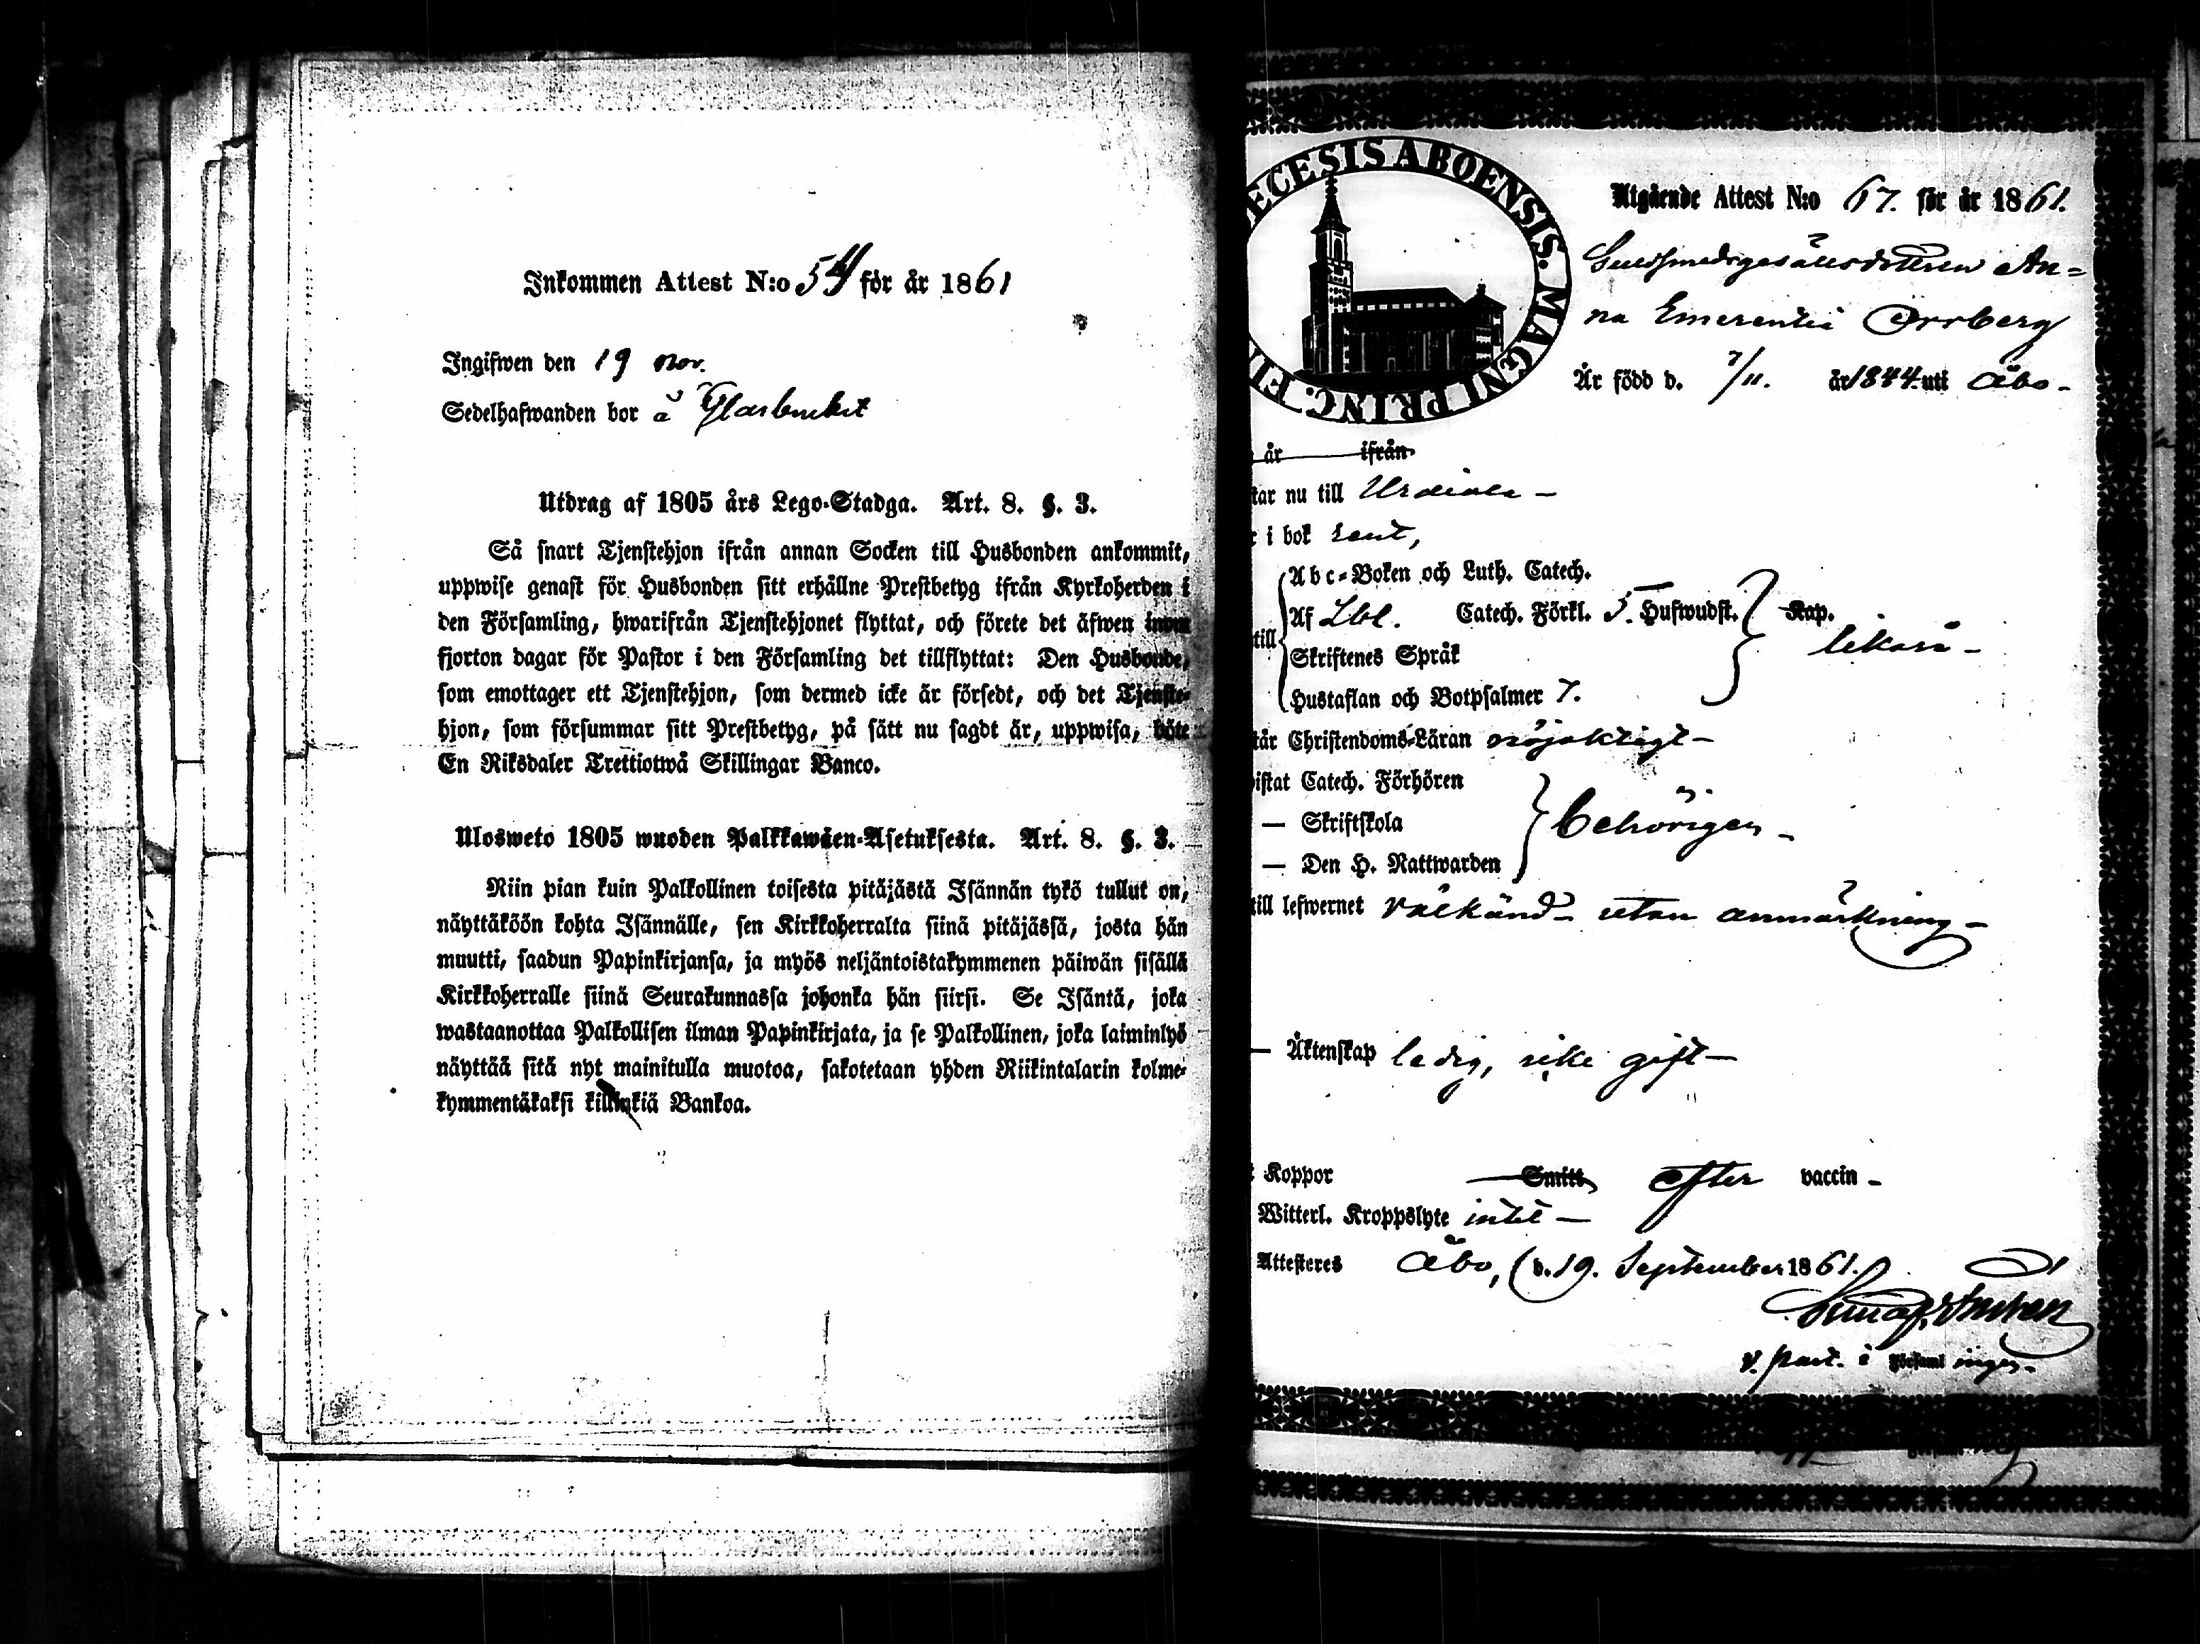 Inkommen Attest N:o 54 för år 1861
Ingifwen den 19 nov.
Sedelhafwanden bor å Glasbruket
Utdrag af 1805 års Lego-Stadga. Art. 8. §. 3.
Så snart Tjenstehjon ifrån annan Socken till Husbonden ankommit,
uppwise genast för Husbonden sitt erhållne Prestbetyg ifrån Kyrkoherden i
den Församling, hwarifrån Tjenstehjonet flyttat, och förete det äfwen inom
fjorton dagar för Pastor i den Församling det tillflyttat: Den Husbonde,
som emottager ett Tjenstehjon, som dermed icke är försedt, och det Tjenste-
hjon, som försummar sitt Prestbetyg, på sätt nu sagdt är, uppwisa, böte
En Riksdaler Trettiotwå Skillingar Banco.
Ulosweto 1805 wuoden Palkkawäen-Asetuksesta. Art. 8. §. 3.
Niin pian kuin Palkollinen toisesta pitäjästä Isännän tykö tullut on,
näyttäköön kohta Isännälle, sen Kirkkoherralta siinä pitäjässä, josta hän
muutti, saadun Papinkirjansa, ja myös neljäntoistakymmenen päiwän sisällä
Kirkkoherralle siinä Seurakunnassa johonka hän siirsi. Se Isäntä, joka
wastaanottaa Palkollisen ilman Papinkirjata, ja se Palkollinen, joka laiminlyö
näyttää sitä nyt mainitulla muotoa, sakotetaan yhden Riikintalarin kolme-
kymmentäkaksi killinkiä Bankoa.
ECESIS ABOENSIS. MAGNI PRINC. FI
Utgående Attest N:o 67. för år 1861.
Guldsmedsgesällsdottren An-
na Emerentia Orrberg
Är född d. 7/11. år 1844. uti Åbo-
år ifrån
tar nu till Urdiala -
i bok rent,
Abc-Boken och Luth. Catech.
Af Lbl. Catech. Förkl. 5. Hufwudst. Kap.
till
Skriftenes Språk
likaså -
Hustaflan och Botpsalmer 7.
tår Christendoms-Läran nöjaktigt -
istat Catech. Förhören
— Skriftskola
behörigen -
— Den H. Nattwarden
till lefwernet välkänd - utan anmärkning -
— Äktenskap ledig, icke gift -
Koppor Smitt efter vaccin -
Witterl. Kroppslyte intet -
Attesteres Åbo, d. 19. September 1861.
v. past. i Församl ingen -